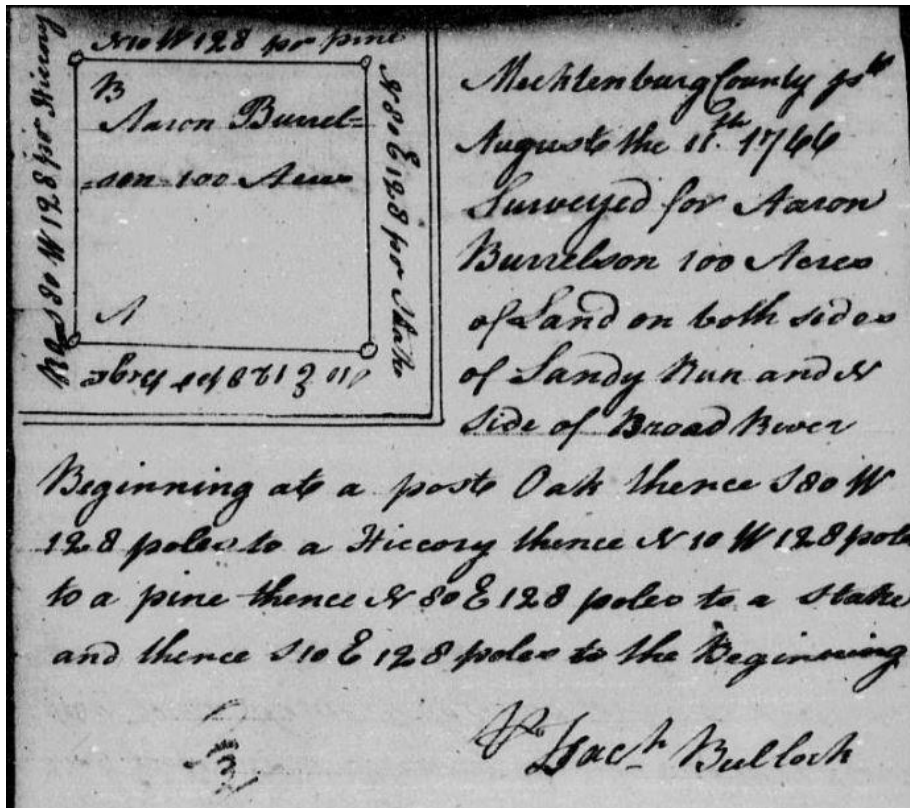 N10 W 128 po: pine
S 80 W 128 po: Hiccory
B
Aaron Burrel=
=son 100 Acres
N 80 E 128 po: Stake
A
S10 E 128 po: Beg
Mecklenburg County
August the 11th. 1766
Surveyed for Aaron
Burrelson 100 Acres
of Land on both sides
of Sandy Run and N
side of Broad River
Beginning at a post Oak thence S80 W
128 poles to a Hiccory thence N 10 W 128 pole
to a pine thence N 80 E 128 poles to a Stake
and thence S10 E 128 poles to the Beginning
Zach Bullock